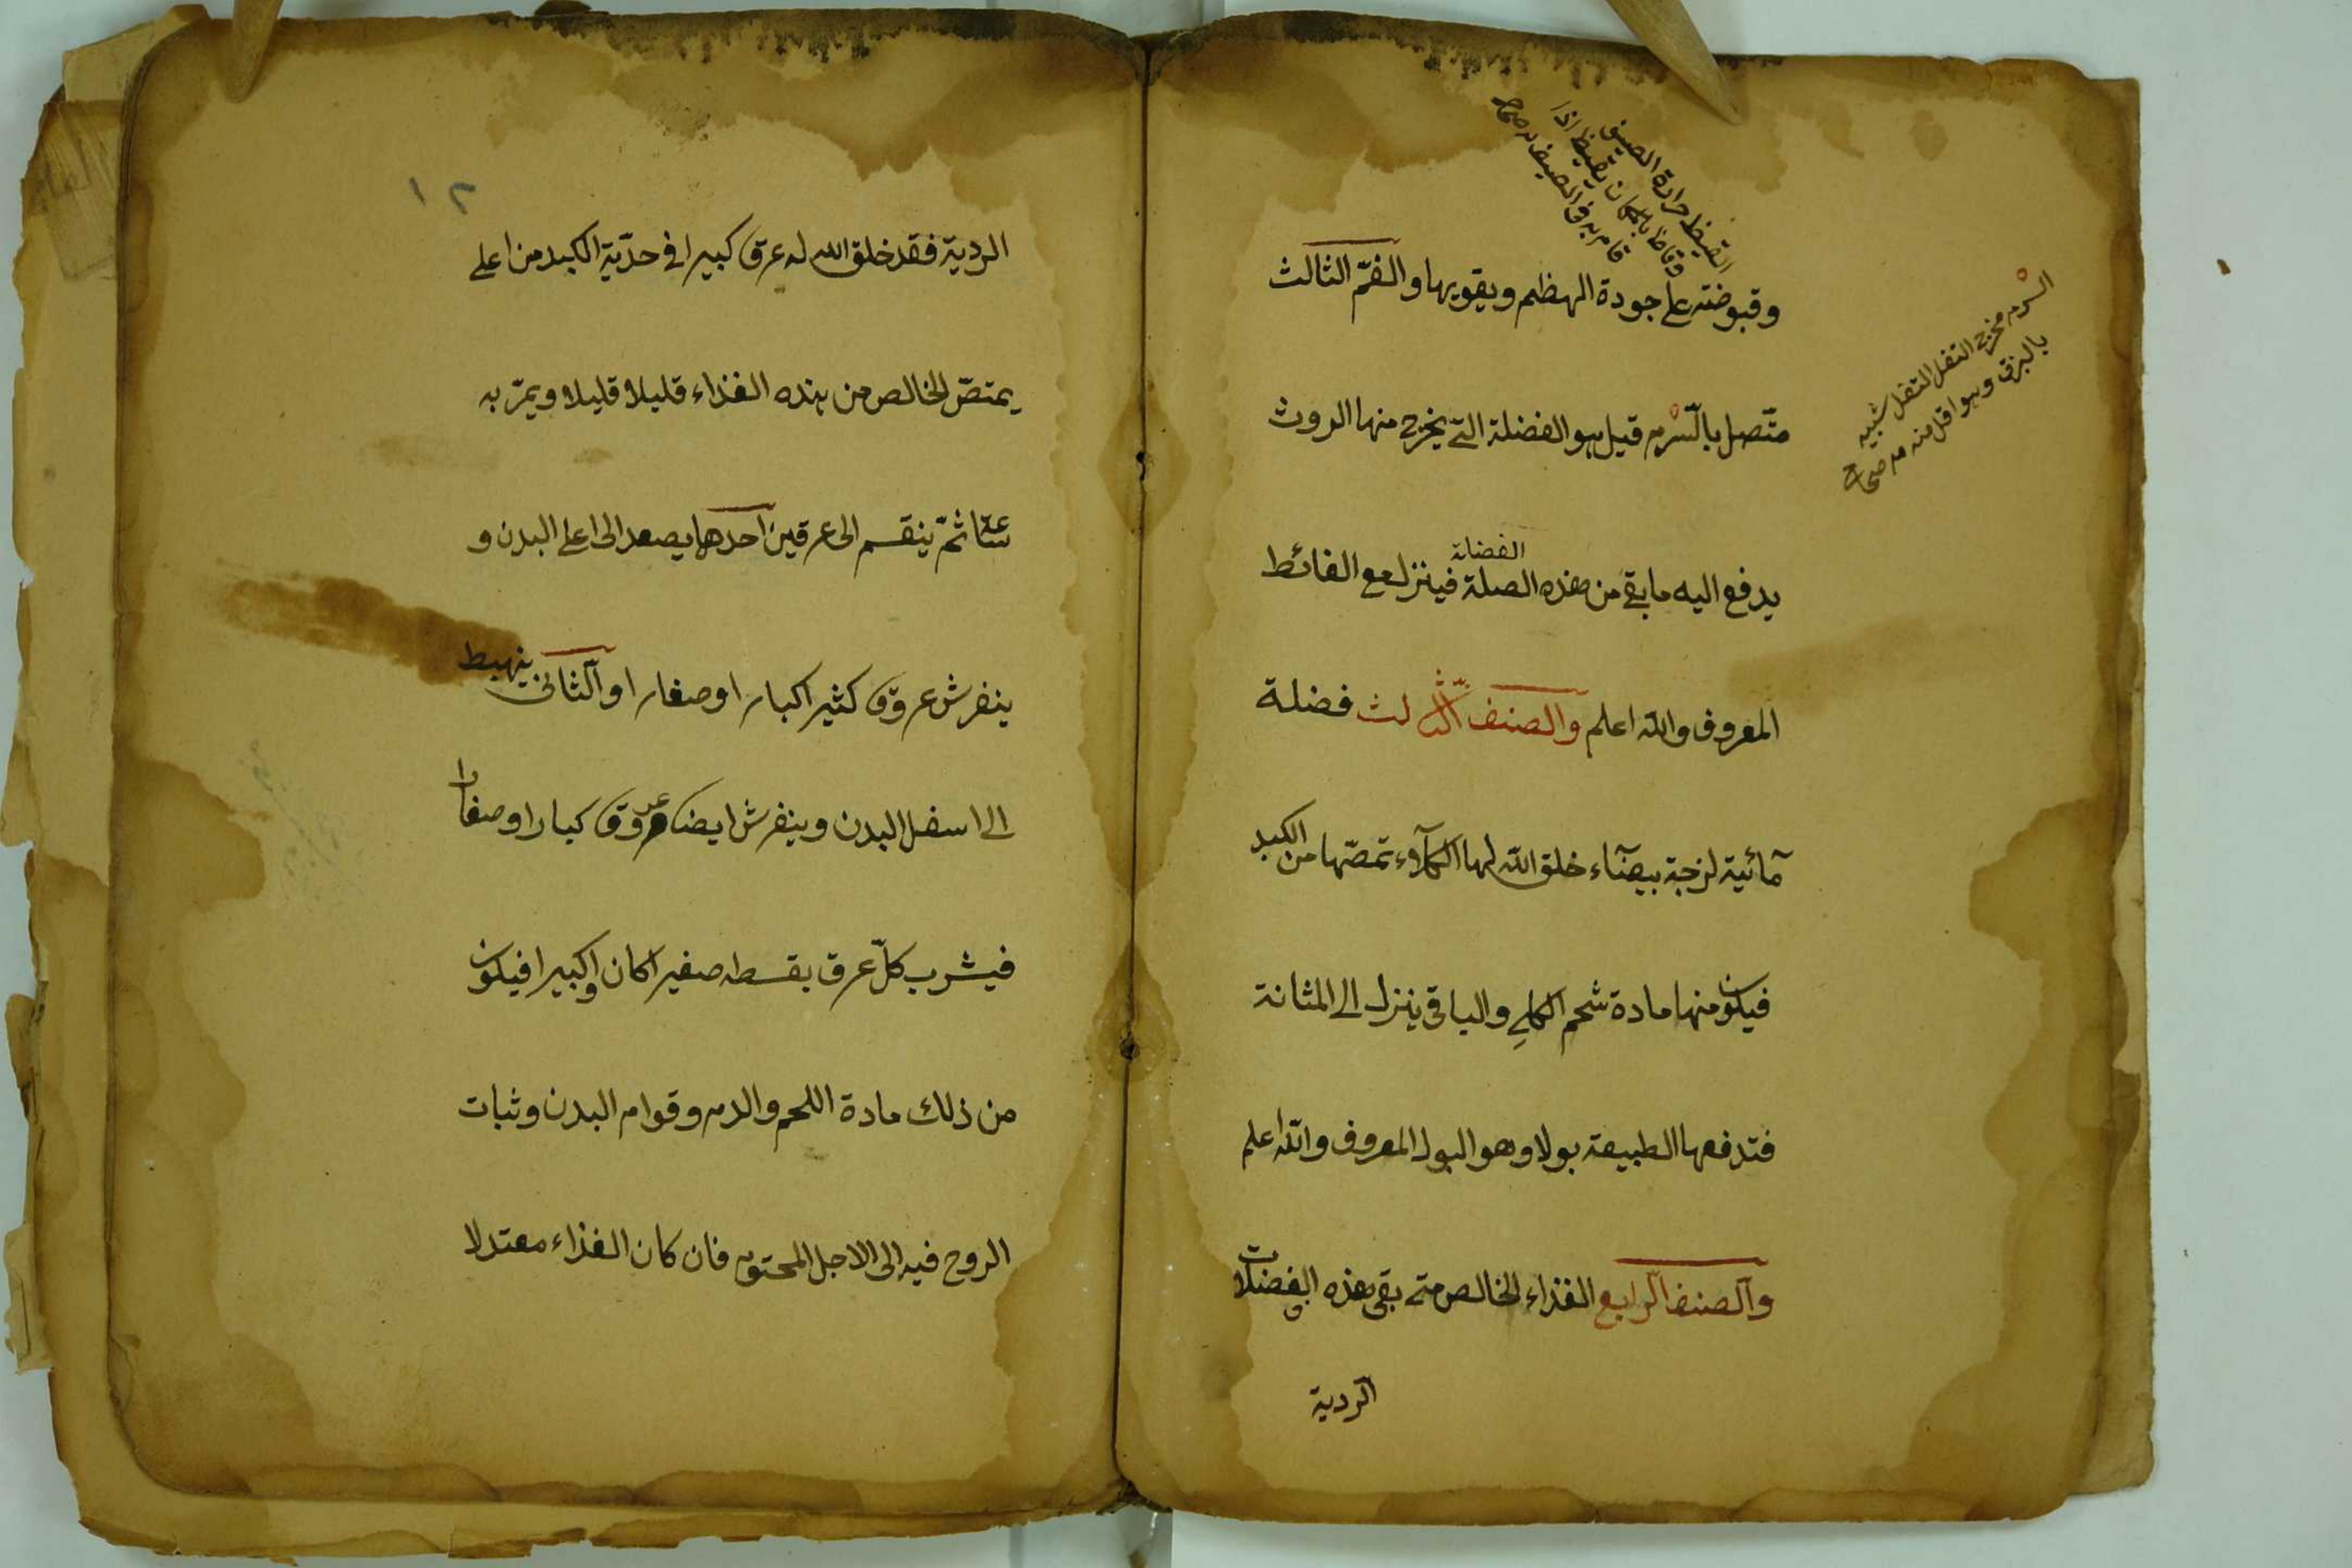 القيظ حرارة الصيف
وقاظ بالمكان يقيظ اذا
قام به في الصيف م صحاح
وقبوضته على جودة الهظم ويقويها والفمّ الثالث
السرم مخرج الثفل التفل شبيه
بالبزق وهو اقل منه م صحاح
متّصل بالسّرم قيل هو الفضلة التي يخرج منها الروث
الفضلة
يدفع اليه ما بقي من هذه الصلة فينزل مع الغائط
المعروف والله اعلم والصنف الثالث فضلة
مآئية لزجة بيضآء خلق الله لها الكلآوء تمصّها من الكبد
فيكون منها مادة شحم الكلي والباقي ينزل الى المثانة
فتدفعها الطبيعة بولا وهو البول المعروف والله اعلم
والصنف الرابع الغذاء الخالص متى بقي هذه الفضلات
الردية
١٢
الردية فقد خلق الله له عرق كبيرا في حدّبة الكبد من اعلى
يمتصّ الخالص من هذه الغذاء قليلا قليلا ويمرّ به
ثمّ ينقسم الى عرقين احدها يصعد الى اعلى البدن و
ينفرش عروق كثيرا كبارا وصغارا والثاني ينهبط
الى اسفل البدن وينفرش ايضا عروق كبارا وصغارا
فيشرب كلّ عرق بقسطه صغيرا كان اوكبيرا فيكون
من ذلك مادة اللحم والدم وقوام البدن وثبات
الروح فيه الى الاجل المحتوم فان كان الغذاء معتدلا